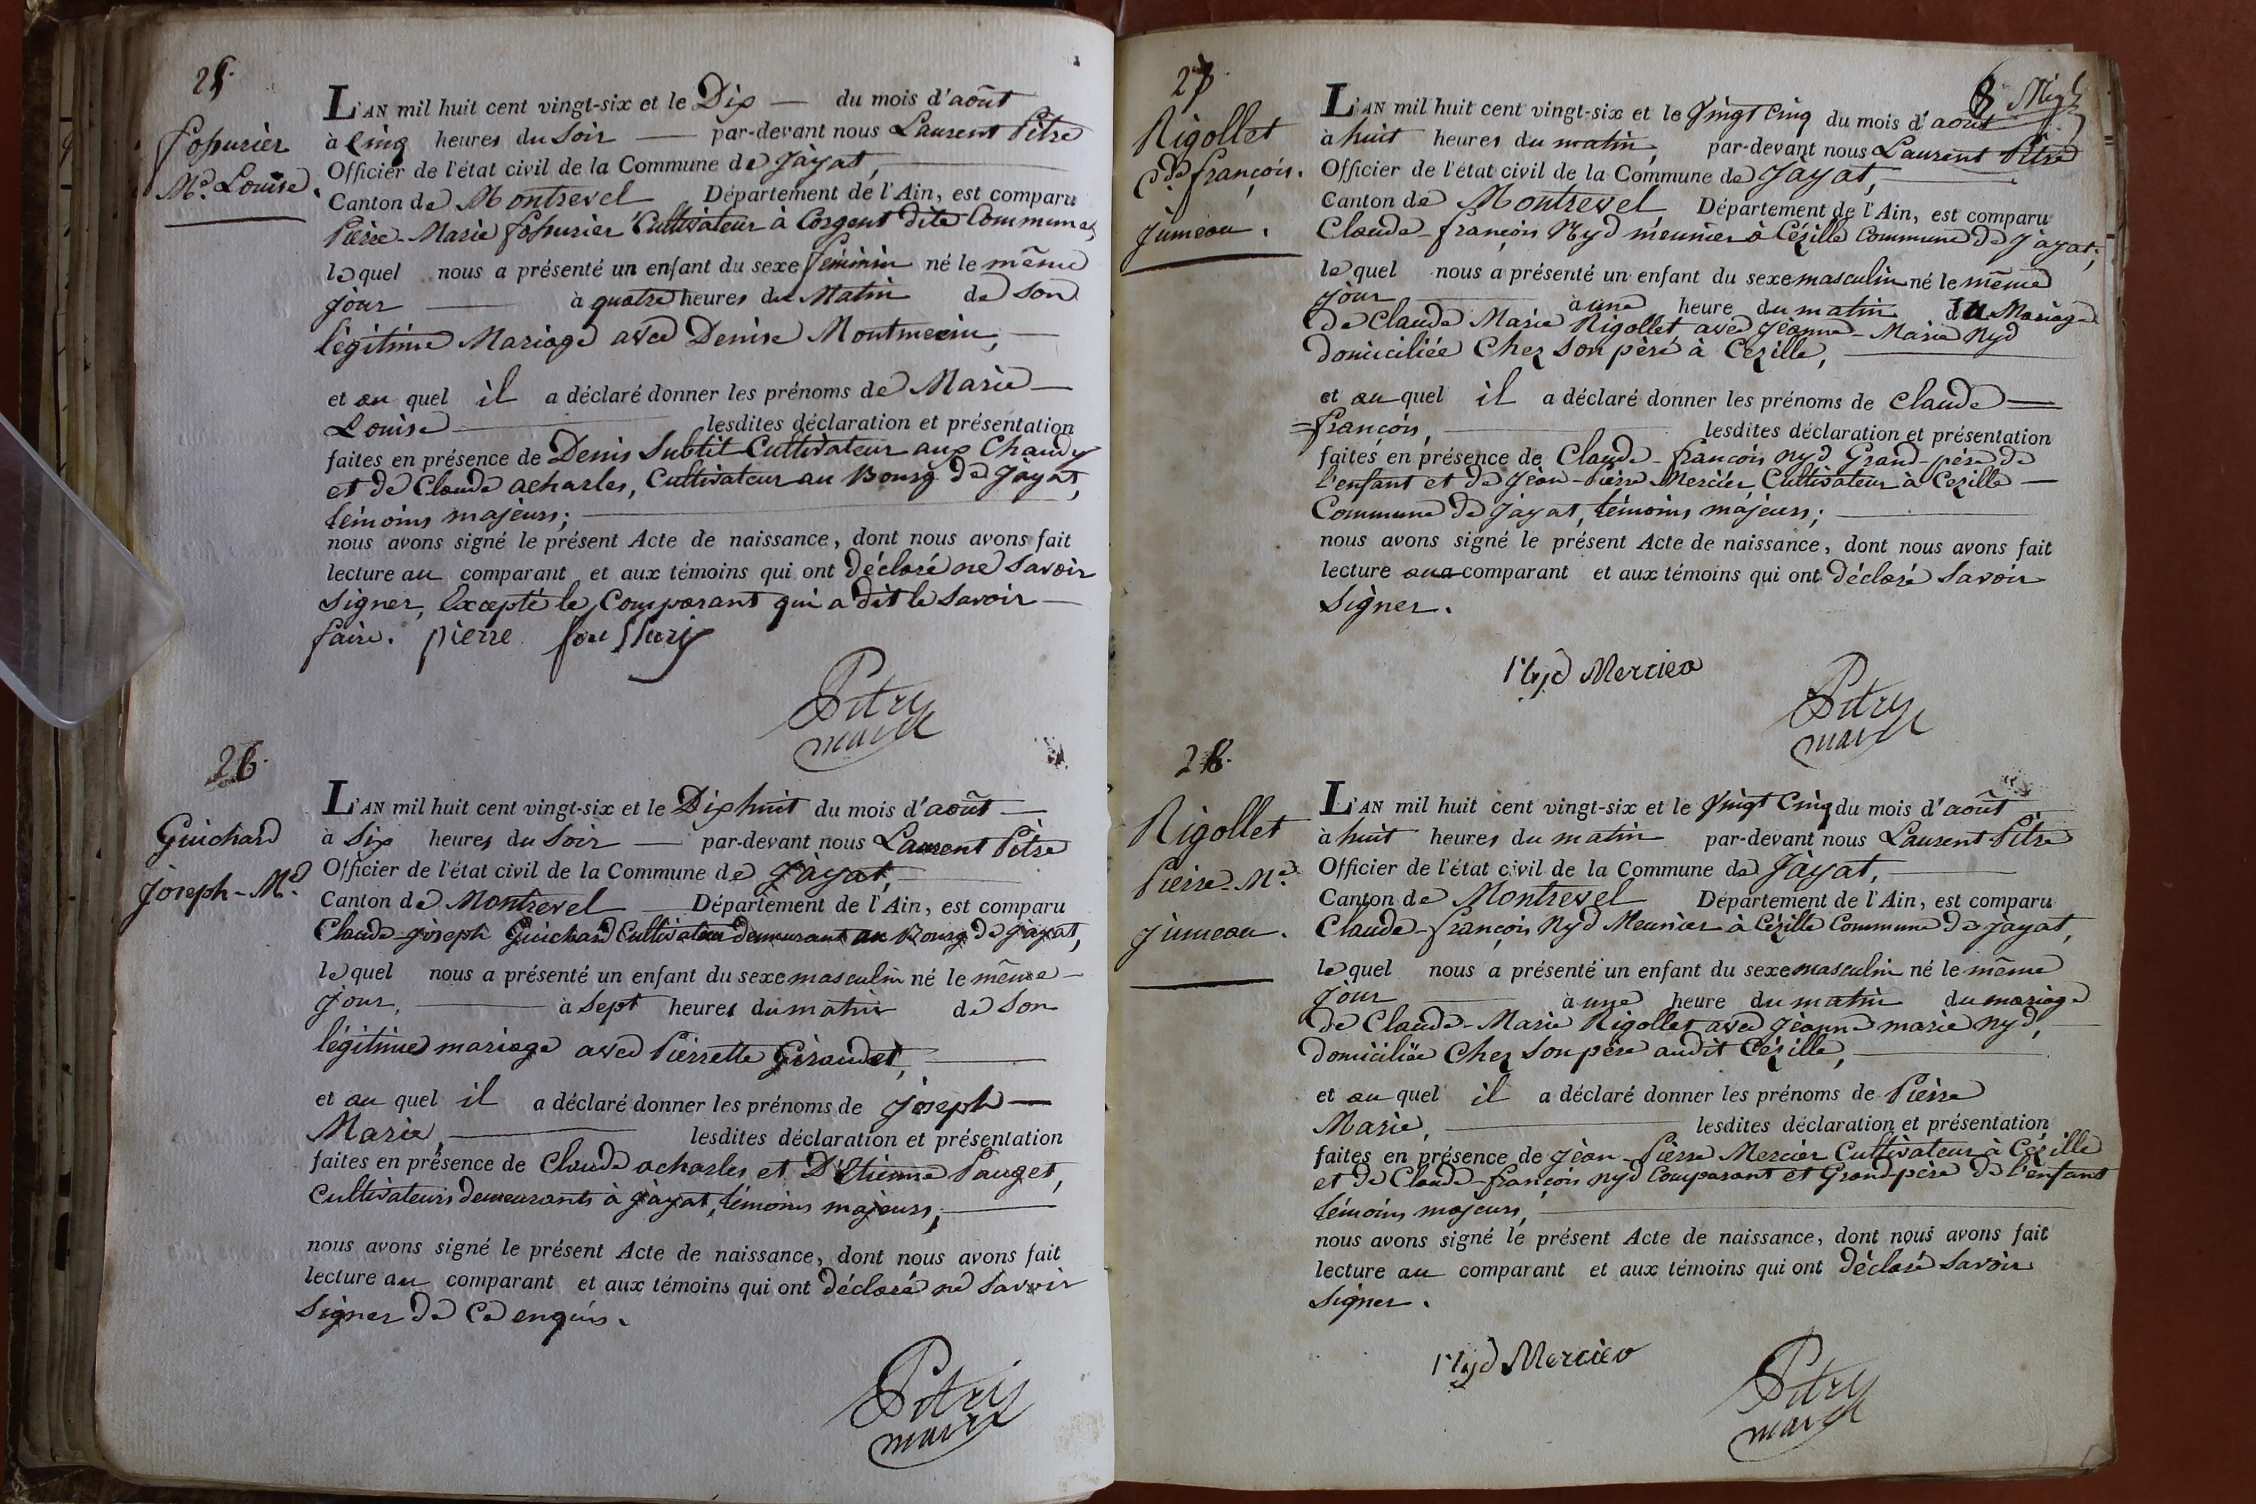 25.
Md. Louise.
L'AN mil huit cent vingt-six et le Dix — du mois d'août
à Cinq heures du Soir — par-devant nous Laurent Pitre
Officier de l'état civil de la Commune de Jàyat,
Canton de Montrevel Département de l'Ain, est comparu
Pierre-Marie Cultivateur à Corgent dite Commune,
lequel nous a présenté un enfant du sexe féminin né le même
jour — à quatre heures du Matin de Son
légitime Mariage avec Denise Montmecin, —
et au quel il a déclaré donner les prénoms de Marie —
Louise — lesdites déclaration et présentation
faites en présence de Denis Subtil Cultivateur aux Chaudy
et de Claude acharles, Cultivateur au Bourg de Jayat,
témoins majeurs; —
nous avons signé le présent Acte de naissance, dont nous avons fait
lecture au comparant et aux témoins qui ont déclaré ne Savoir
Signer, Excepté le Comparant qui a dit le Savoir —
faire. pierre
Pitre
maire
26.
Guichard
Joseph-Md.
L'AN mil huit cent vingt-six et le Dix huit du mois d'août —
à Six heures du Soir — par-devant nous Laurent Pitre
Officier de l'état civil de la Commune de Jàyat, —
Canton de Montrevel — Département de l'Ain, est comparu
Claude-joseph Guichard Cultivateur demeurant au Bourg de jàyat,
lequel nous a présenté un enfant du sexe masculin né le même —
jour, — à Sept heures du matin de Son
légitime mariage avec Pierrette Giraudet, —
et au quel il a déclaré donner les prénoms de joseph —
Marie, — lesdites déclaration et présentation
faites en présence de Claude acharles et D'Etienne Pauget,
Cultivateurs demeurants à jàyat, témoins majeurs, —
nous avons signé le présent Acte de naissance, dont nous avons fait
lecture au comparant et aux témoins qui ont déclaré ne Savoir
Signer de Ce enquis.
Pitre
maire
8
27.
Rigollet
Cde. françois.
jumeau.
L'AN mil huit cent vingt-six et le Vingt Cinq du mois d'août
à huit heures du matin, par-devant nous Laurent Pitre
Officier de l'état civil de la Commune de Jàyat, —
Canton de Montrevel Département de l'Ain, est comparu
Claude-françois Nyd meunier à Cézille Commune de Jàyat,
lequel nous a présenté un enfant du sexe masculin né le même
jour — à une heure du matin du Mariage
de Claude Marie Rigollet avec Jéanne-Marie Nyd
domiciliée Chez Son père à Cezille, —
et au quel il a déclaré donner les prénoms de Claude —
=françois, — lesdites déclaration et présentation
faites en présence de Claude-françois Nyd Grand-père de
l'enfant et de Jéan-Pierre Mercier Cultivateur à Cezille —
Commune de Jayat, témoins majeurs; —
nous avons signé le présent Acte de naissance, dont nous avons fait
lecture au comparant et aux témoins qui ont déclaré Savoir
Signer.
Nyd Mercier
Pitre
maire
28.
Rigollet
Pierre-Md.
jumeau.
L'AN mil huit cent vingt-six et le Vingt Cinq du mois d'août
à huit heures du matin par-devant nous Laurent Pitre
Officier de l'état civil de la Commune de Jàyat, —
Canton de Montrevel Département de l'Ain, est comparu
Claude-françois Nyd Meunier à Cézille Commune de jàyat,
lequel nous a présenté un enfant du sexe masculin né le même
jour — à une heure du matin du mariage
de Claude-Marie Rigollet avec Jéanne marie Nyd, —
domiciliée Chez Son père audit Cézille, —
et au quel il a déclaré donner les prénoms de Pierre
Marie, — lesdites déclaration et présentation
faites en présence de Jéan-Pierre Mercier Cultivateur à Cézille
et de Claude-françois Nyd Comparant et Grandpère de l'enfant
témoins majeurs, —
nous avons signé le présent Acte de naissance, dont nous avons fait
lecture au comparant et aux témoins qui ont déclaré Savoir
Signer.
Nyd Mercier
Pitre
maire